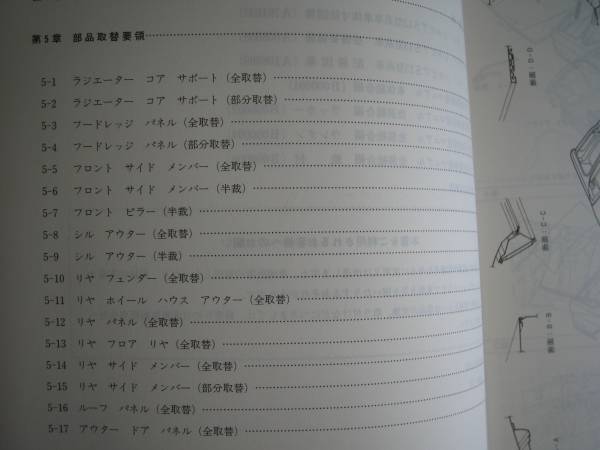 第5章 部品取替要領
5-1 ラジエーター コア サポート（全取替）
5-2 ラジエーター コア サポート（部分取替）
5-3 フードレッジ パネル（全取替）
5-4 フードレッジ パネル（部分取替）
5-5 フロント サイド メンバー（全取替）
5-6 フロント サイド メンバー（半裁）
5-7 フロント ピラー（半裁）
5-8 シル アウター（全取替）
5-9 シル アウター（半裁）
5-10 リヤ フェンダー（全取替）
5-11 リヤ ホイール ハウス アウター（全取替）
5-12 リヤ パネル（全取替）
5-13 リヤ フロア リヤ（全取替）
5-14 リヤ サイド メンバー（全取替）
5-15 リヤ サイド メンバー（部分取替）
5-16 ルーフ パネル（全取替）
5-17 アウター ドア パネル（全取替）
断面：D－D
断面：C－C
断面：B－B